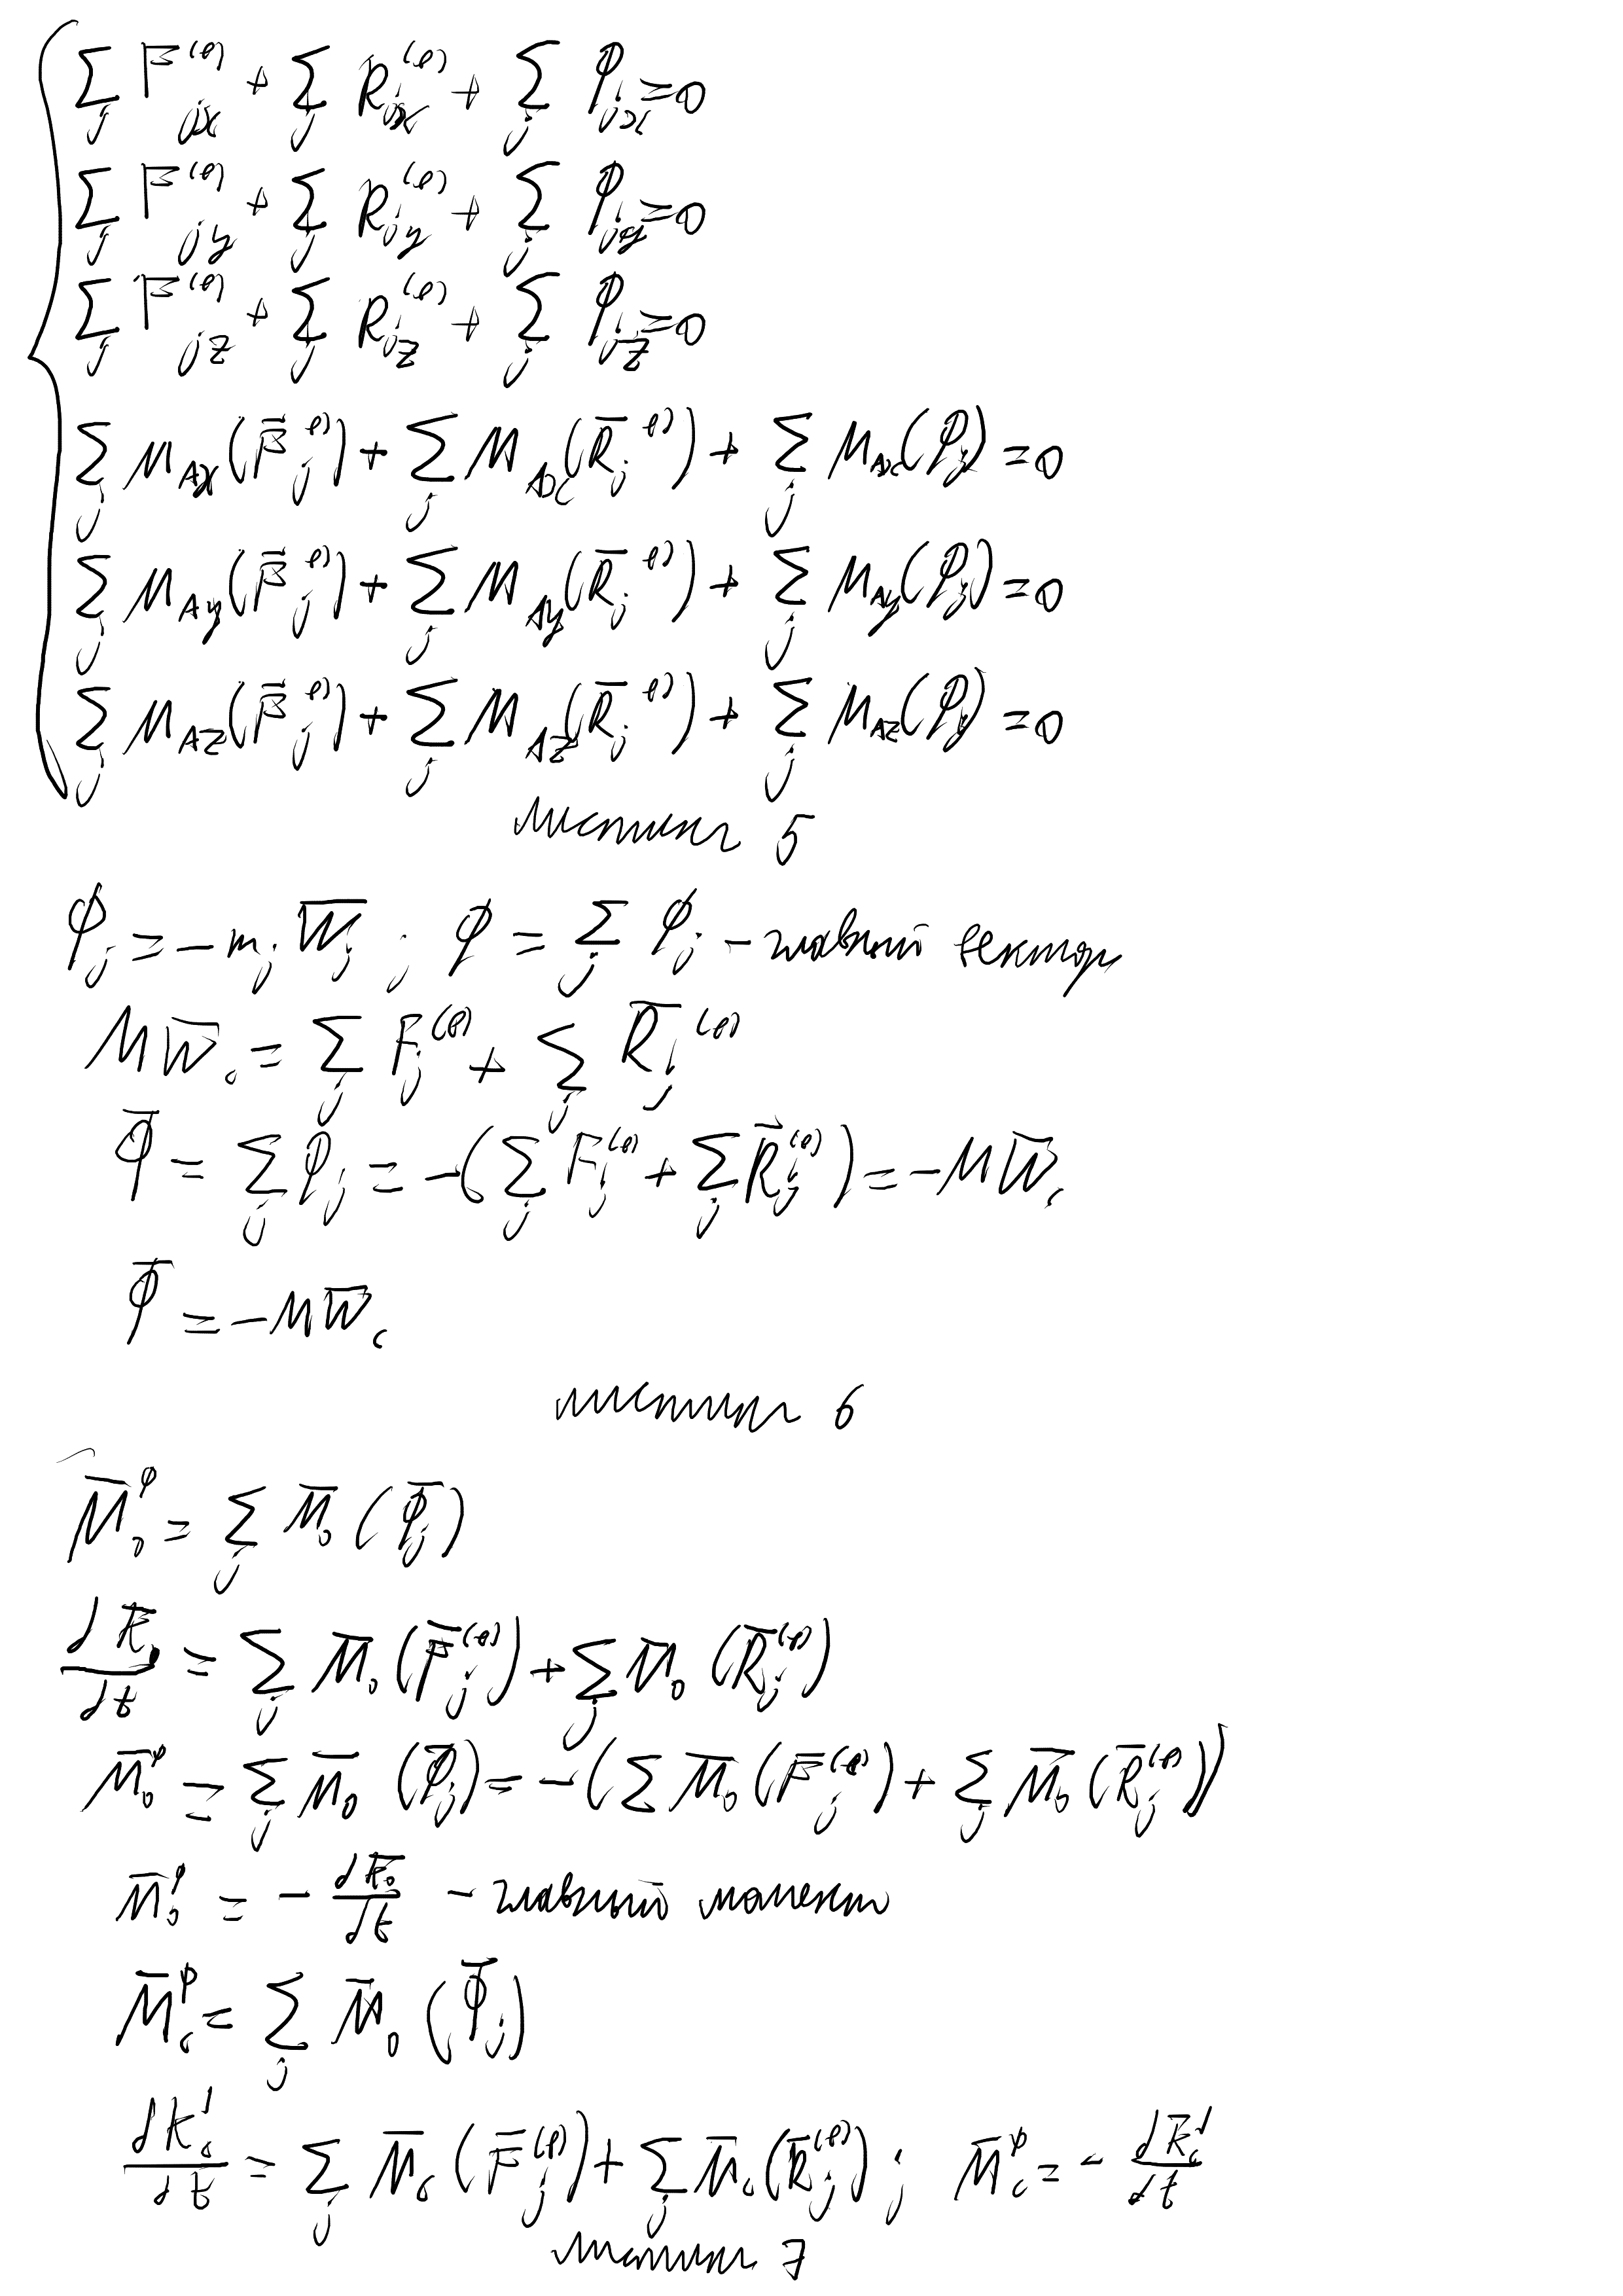 ∑_j F_jx^(e) + ∑_j R_jx^(e) + ∑_j Φ_jx = 0
∑_j F_jy^(e) + ∑_j R_jy^(e) + ∑_j Φ_jy = 0
∑_j F_jz^(e) + ∑_j R_jz^(e) + ∑_j Φ_jz = 0
∑_j M_Ax(F̄_j^(e)) + ∑_j M_Ax(R̄_j^(e)) + ∑_j M_Ax(Φ_j) = 0
∑_j M_Ay(F̄_j^(e)) + ∑_j M_Ay(R̄_j^(e)) + ∑_j M_Ay(Φ_j) = 0
∑_j M_Az(F̄_j^(e)) + ∑_j M_Az(R̄_j^(e)) + ∑_j M_Az(Φ_j) = 0
листинг 5
Φ_j = -m_j W̄_j ; Φ = ∑_j Φ_j - главный вектор
M W̄_c = ∑_j F_j^(e) + ∑_j R̄_j^(e)
Φ̄ = ∑_j Φ_j = -(∑_j F_j^(e) + ∑_j R̄_j^(e)) = -M W̄_c
Φ̄ = -M W̄_c
листинг 6
M̄_o^Φ = ∑_j M̄_o (Φ̄_j)
dK̄_o/dt = ∑_j M̄_o (F̄_j^(e)) + ∑_j M̄_o (R̄_j^(e))
M̄_o^Φ = ∑_j M̄_o (Φ̄_j) = -(∑ M̄_o (F̄_j^(e)) + ∑_j M̄_o (R̄_j^(e)))
M̄_o^Φ = - dK̄_o/dt - главный момент
M̄_c^Φ = ∑_j M̄_o (Φ̄_j)
dK'_c/dt = ∑_j M̄_c (F̄_j^(e)) + ∑_j M̄_c (R̄_j^(e)) ; M̄_c^Φ = - dK̄'_c/dt
листинг 7